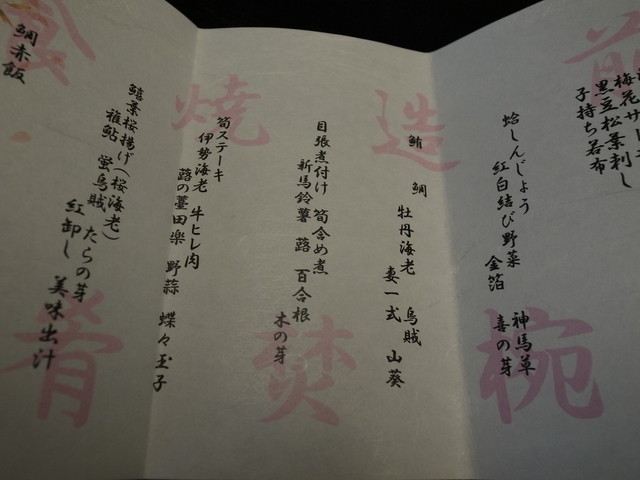 前
梅花サ
黒豆松葉刺し
子持ち若布
椀
蛤しんじょう
紅白結び野菜
金箔
神馬草
喜の芽
造
鮪
鯛
牡丹海老
烏賊
妻一式
山葵
焚
目張煮付け 筍含め煮
新馬鈴薯 蕗 百合根
木の芽
焼
筍ステーキ
伊勢海老 牛ヒレ肉
蕗の薹田楽 野蒜 蝶々玉子
肴
鱚葉桜揚げ(桜海老)
稚鮎 蛍烏賊 たらの芽
紅卸し 美味出汁
食
鯛赤飯